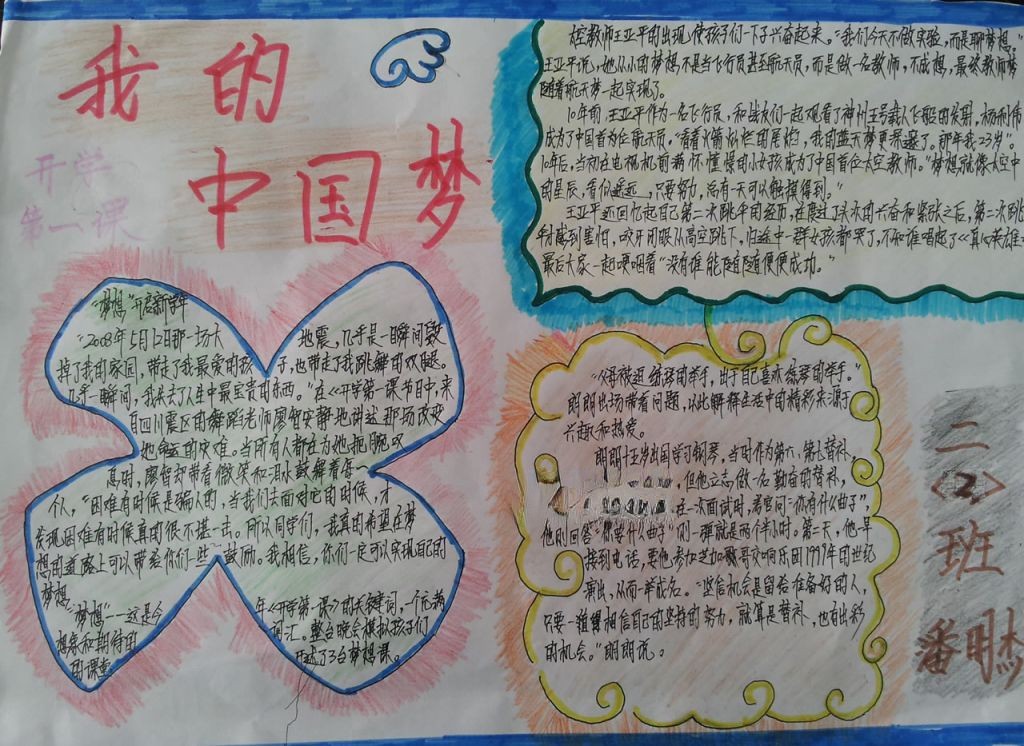 我的
中国梦
开学
第一课
太空教师王亚平的出现,使孩子们一下子兴奋起来。“我们今天不做实验,而是聊梦想。”
王亚平说,她从小的梦想不是当飞行员甚至航天员,而是做一名教师,不成想,最终教师梦
随着航天梦一起实现了。
10年前,王亚平作为一名飞行员,和战友们一起观看了神州五号载人飞船的发射,杨利伟
成为了中国首为位航天员。“看着火箭灿烂的尾焰,我的蓝天梦更深邃了。那年我23岁。”
10年后,当初在电视机前满怀憧憬的小女孩成为了中国首位太空教师。“梦想就像太空中
的星辰,看似遥远,只要努力,总有一天可以触摸得到。”
王亚平还回忆起自己第一次跳伞的经历,在度过了头次的兴奋和紧张之后,第二次跳
伞才感到害怕,咬牙闭眼从高空跳下,归途中一群女孩都哭了,不知谁唱起了《真心英雄》
最后大家一起哽咽着“没有谁能随随便便成功。”
“梦想”开启新学年
“2008年5月12日那一场大地震,几乎是一瞬间毁
掉了我的家园,带走了我最爱的孩子,也带走了我跳舞的双腿。
几乎一瞬间,我失去了人生中最宝贵的东西。”在《开学第一课节目中,来
自四川震区的舞蹈老师廖智安静地讲述那场改变
她命运的灾难。当所有人都在为她把眼双
息时,廖智却带着微笑和泪水鼓舞着每一
个人,“困难有时候是骗人的,当我们去面对它的时候,才
发现困难有时候真的很不堪一击。所以同学们,我真的希望在梦
想的道路上可以带给你们一些鼓励。我相信,你们一定可以实现自己的
梦想。
“梦想”--这是今年《开学第一课》的关键词,一个充满
想象和期待的词汇。整台晚会模拟孩子们
的课堂,开述了3台梦想课。
“父母被迫练琴的牵手,出于自己喜欢练琴的牵手。”
朗朗出场带着问题,以此解释生活中的精彩来源于
兴趣和热爱。
朗朗十五岁出国学习钢琴,当时作为第六、第七替补,
但他立志做一名勤奋的替补,
在一次面试时,考官问“你有什么曲子”,
他则回答“你要什么曲子”们一弹就是两个半小时。第二天,他早
接到电话,要他参加芝加哥交响乐团1997年的世纪
演出,从而一举成名。“坚信机会是留给准备好的人,
只要一直相信自己的坚持的努力,就算是替补,也有出彩
的机会。”朗朗说。
二
<2>
班
潘明杰